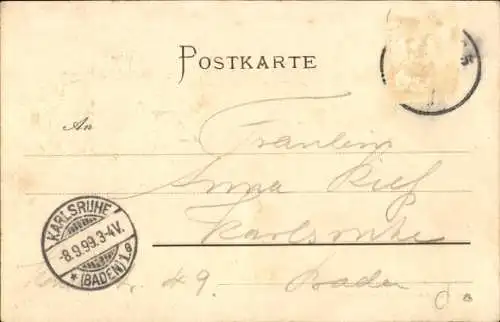 POSTKARTE
An
Fräulein
Anna Kief
Karlsruhe
KARLSRUHE
-8.9.99.3-4V.
* (BADEN) 1.a
49. Baden